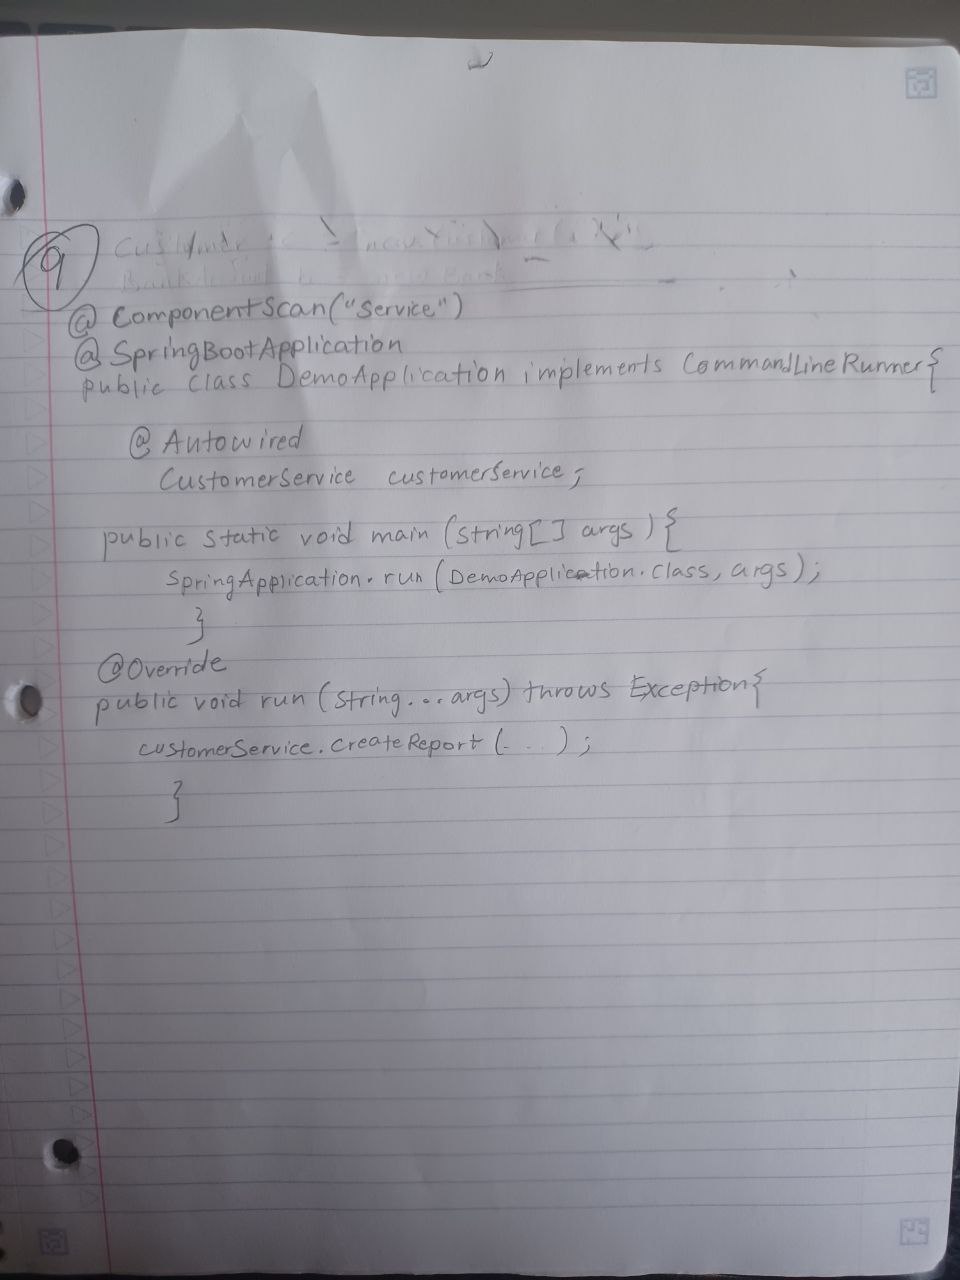 9
@ ComponentScan("Service")
@ SpringBootApplication
public class DemoApplication implements CommandLineRunner{
@ Autowired
CustomerService customerService;
public static void main (String[] args) {
SpringApplication.run (DemoApplication.class, args);
}
@Override
public void run (String... args) throws Exception{
customerService.createReport (...);
}